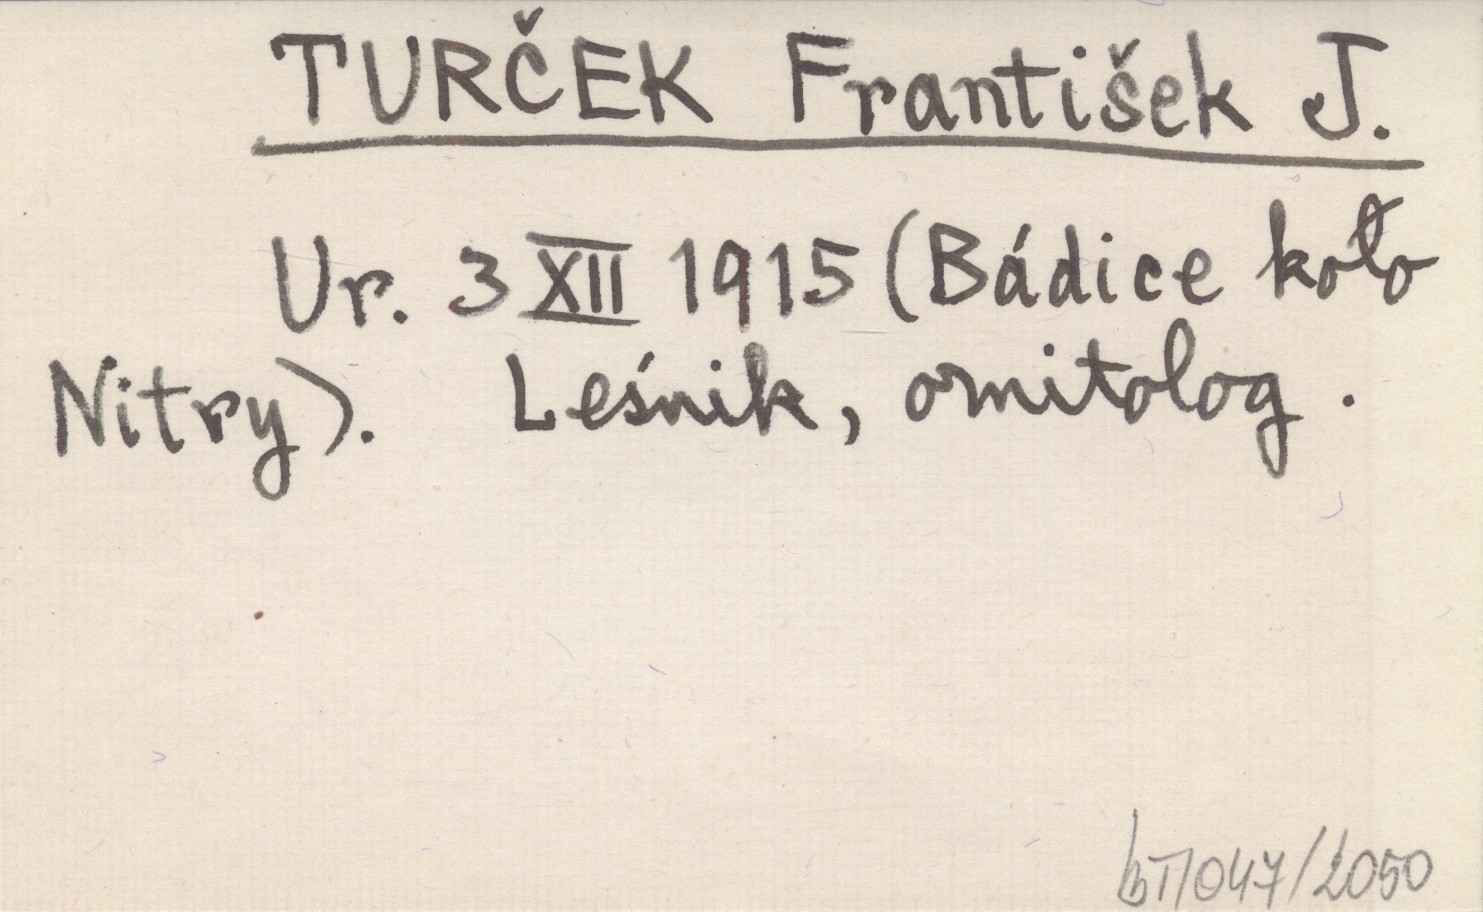 TURČEK František J.
Ur. 3 XII 1915 (Bádice koło
Nitry). Leśnik, ornitolog.
bT/047/2050